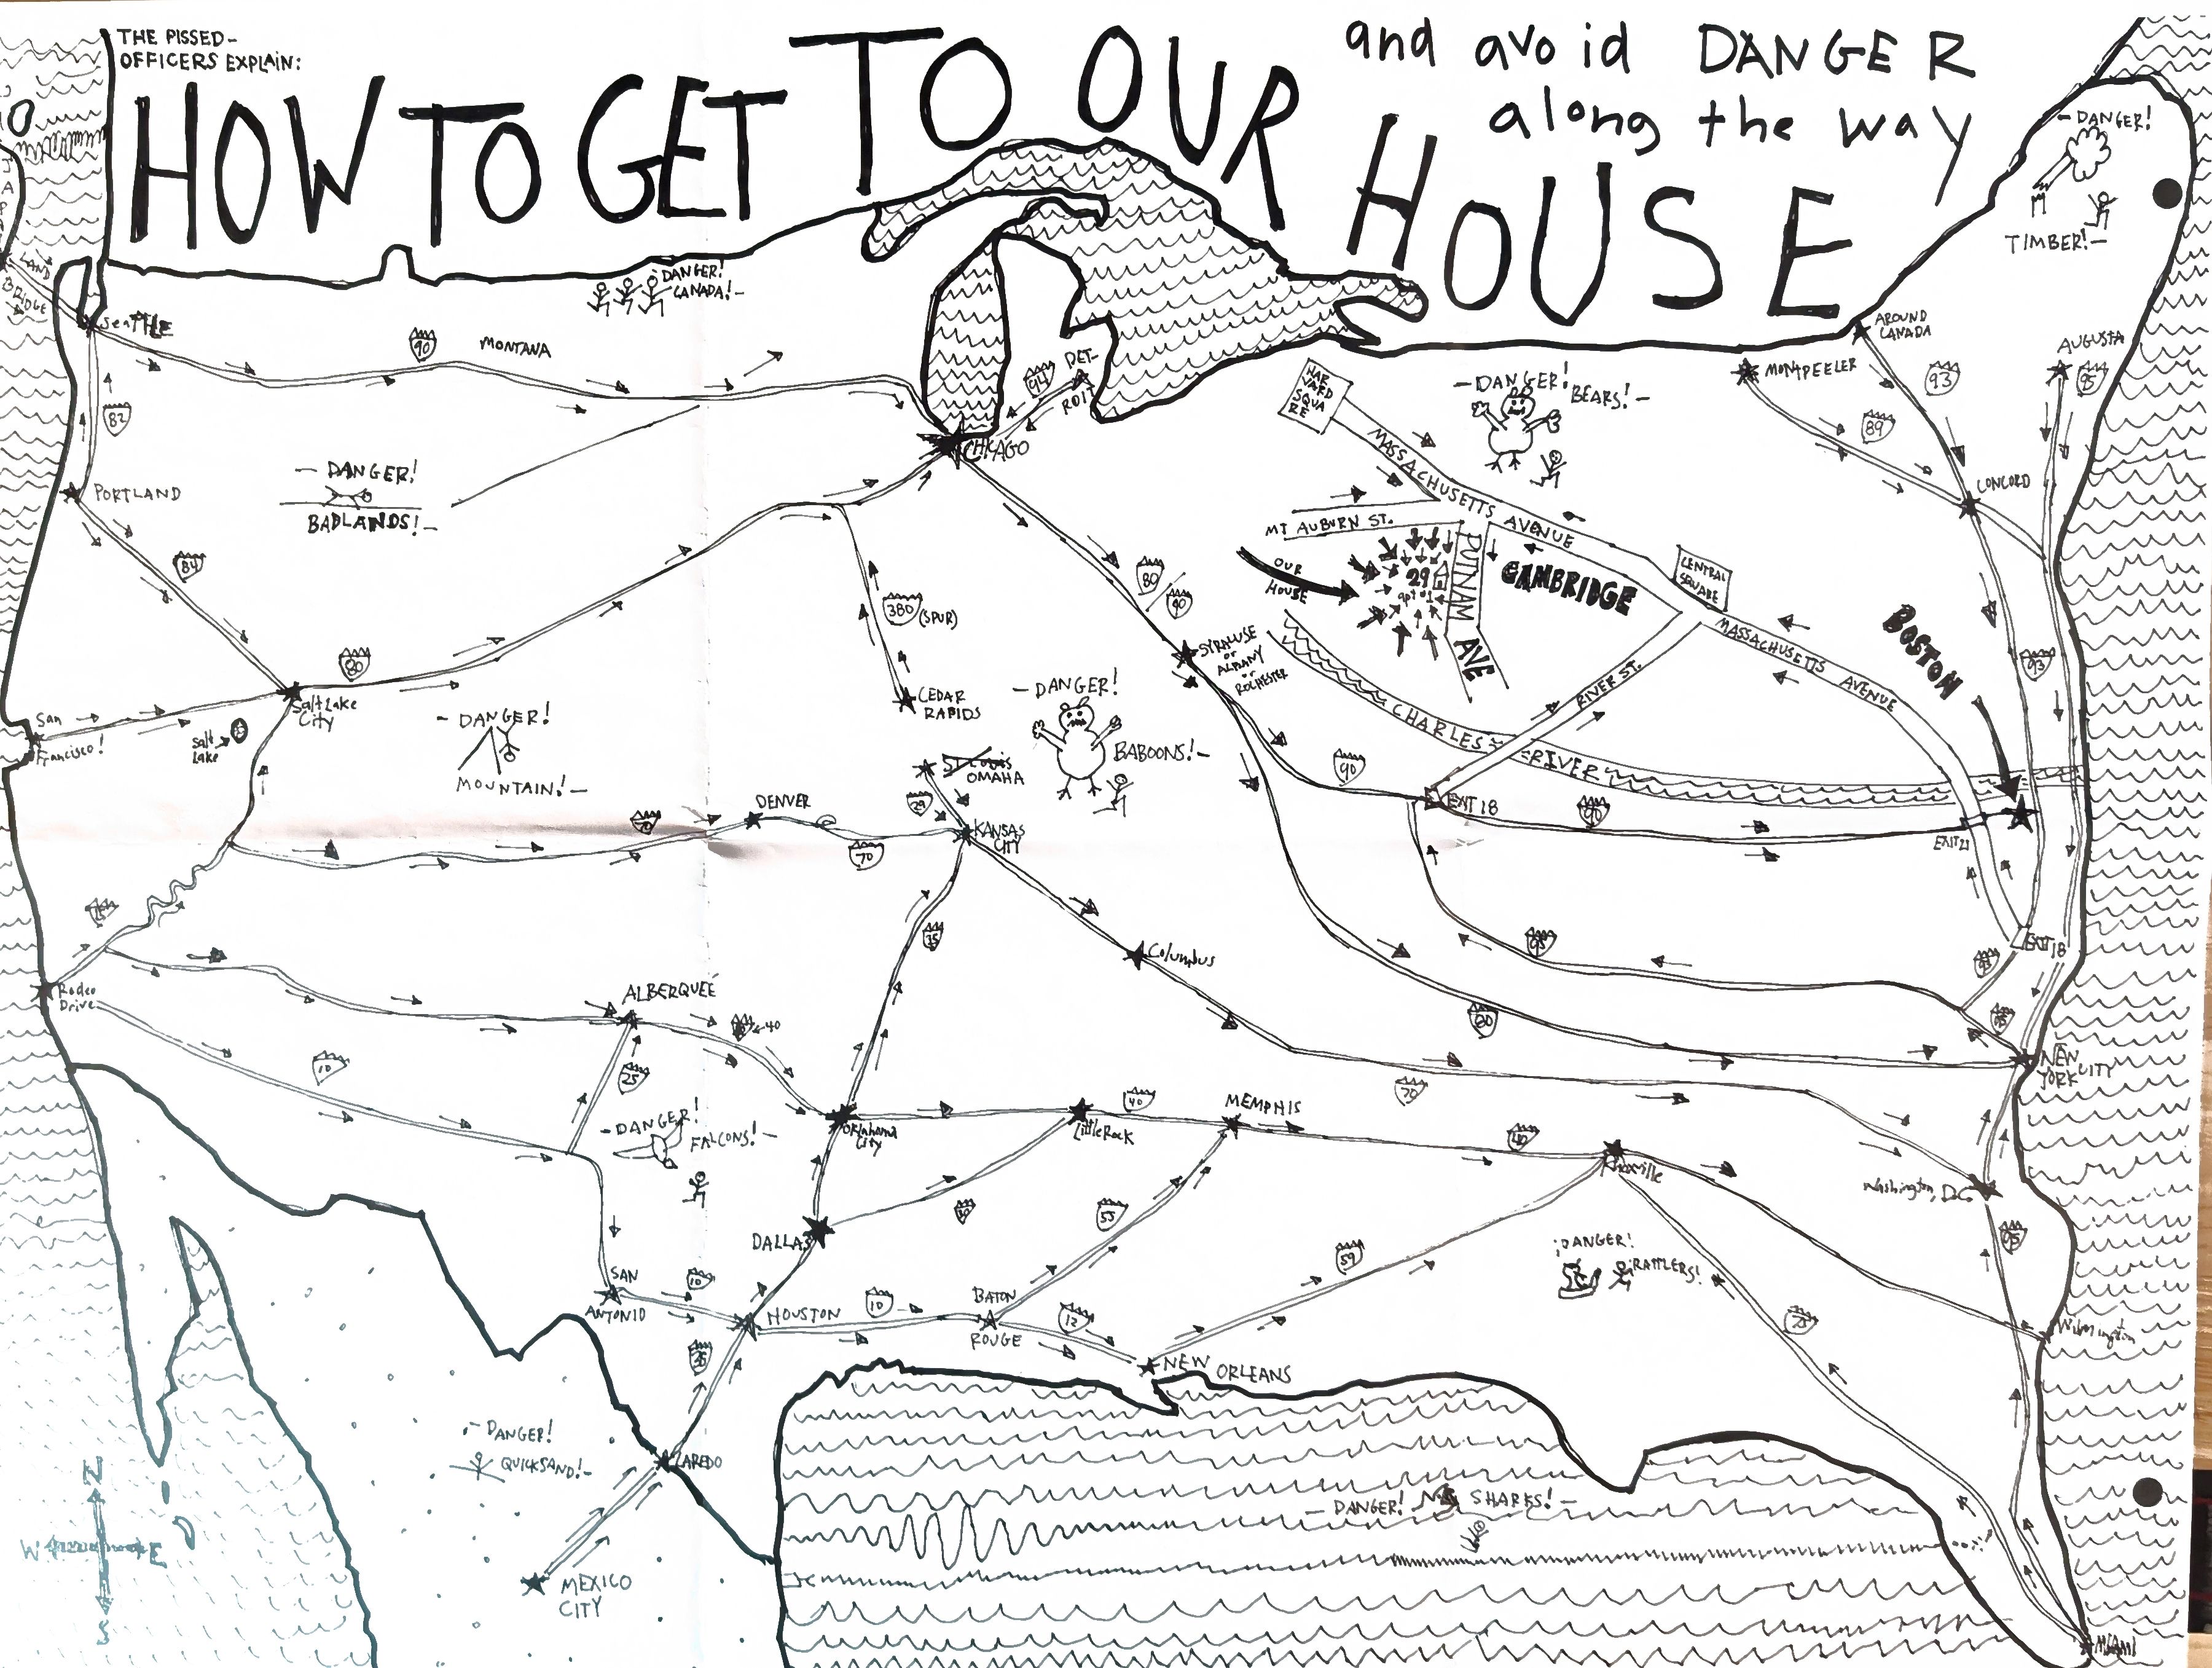 THE PISSED-
OFFICERS EXPLAIN:
HOW TO GET TO OUR HOUSE
and avoid DANGER
along the way
-DANGER!
TIMBER!-
JAPAN
LAND
BRIDGE
SEATTLE
90
MONTANA
DANGER!
CANADA!-
82
PORTLAND
84
- DANGER!
BADLANDS!-
94
DET-
ROIT
CHICAGO
HAR
VARD
SQUA
RE
MASSACHUSETTS AVENUE
-DANGER!
BEARS!-
AROUND
CANADA
MONTPEELER
AUGUSTA
93
95
89
CONCORD
MT AUBURN ST.
OUR
HOUSE
29
apt #1
PUTNAM AVE
CAMBRIDGE
CENTRAL
SQUARE
MASSACHUSETTS AVENUE
BOSTON
93
80
90
SYRACUSE
or
ALBANY
or
ROCHESTER
RIVER ST.
CHARLES RIVER
80
Salt Lake
City
San
Francisco!
Salt
Lake
- DANGER!
MOUNTAIN!-
380
(SPUR)
CEDAR
RAPIDS
-DANGER!
BABOONS!-
St Louis
OMAHA
29
DENVER
70
70
KANSAS
CITY
90
EXIT 18
90
EXIT 21
15
35
Columbus
95
EXIT 18
93
95
Rodeo
Drive
ALBERQUEE
40
10
25
80
NEW
YORK CITY
70
-DANGER!
FALCONS!-
Oklahoma
City
Little Rock
40
MEMPHIS
40
Knoxville
Washington, D.C.
DALLAS
30
55
59
95
¡DANGER!
¡RATTLERS!
75
SAN
ANTONIO
10
HOUSTON
10
BATON
ROUGE
12
NEW ORLEANS
Wilmington
35
- DANGER!
QUICKSAND!-
LAREDO
MEXICO
CITY
- DANGER!
SHARKS!-
MIAMI
N
W
E
S